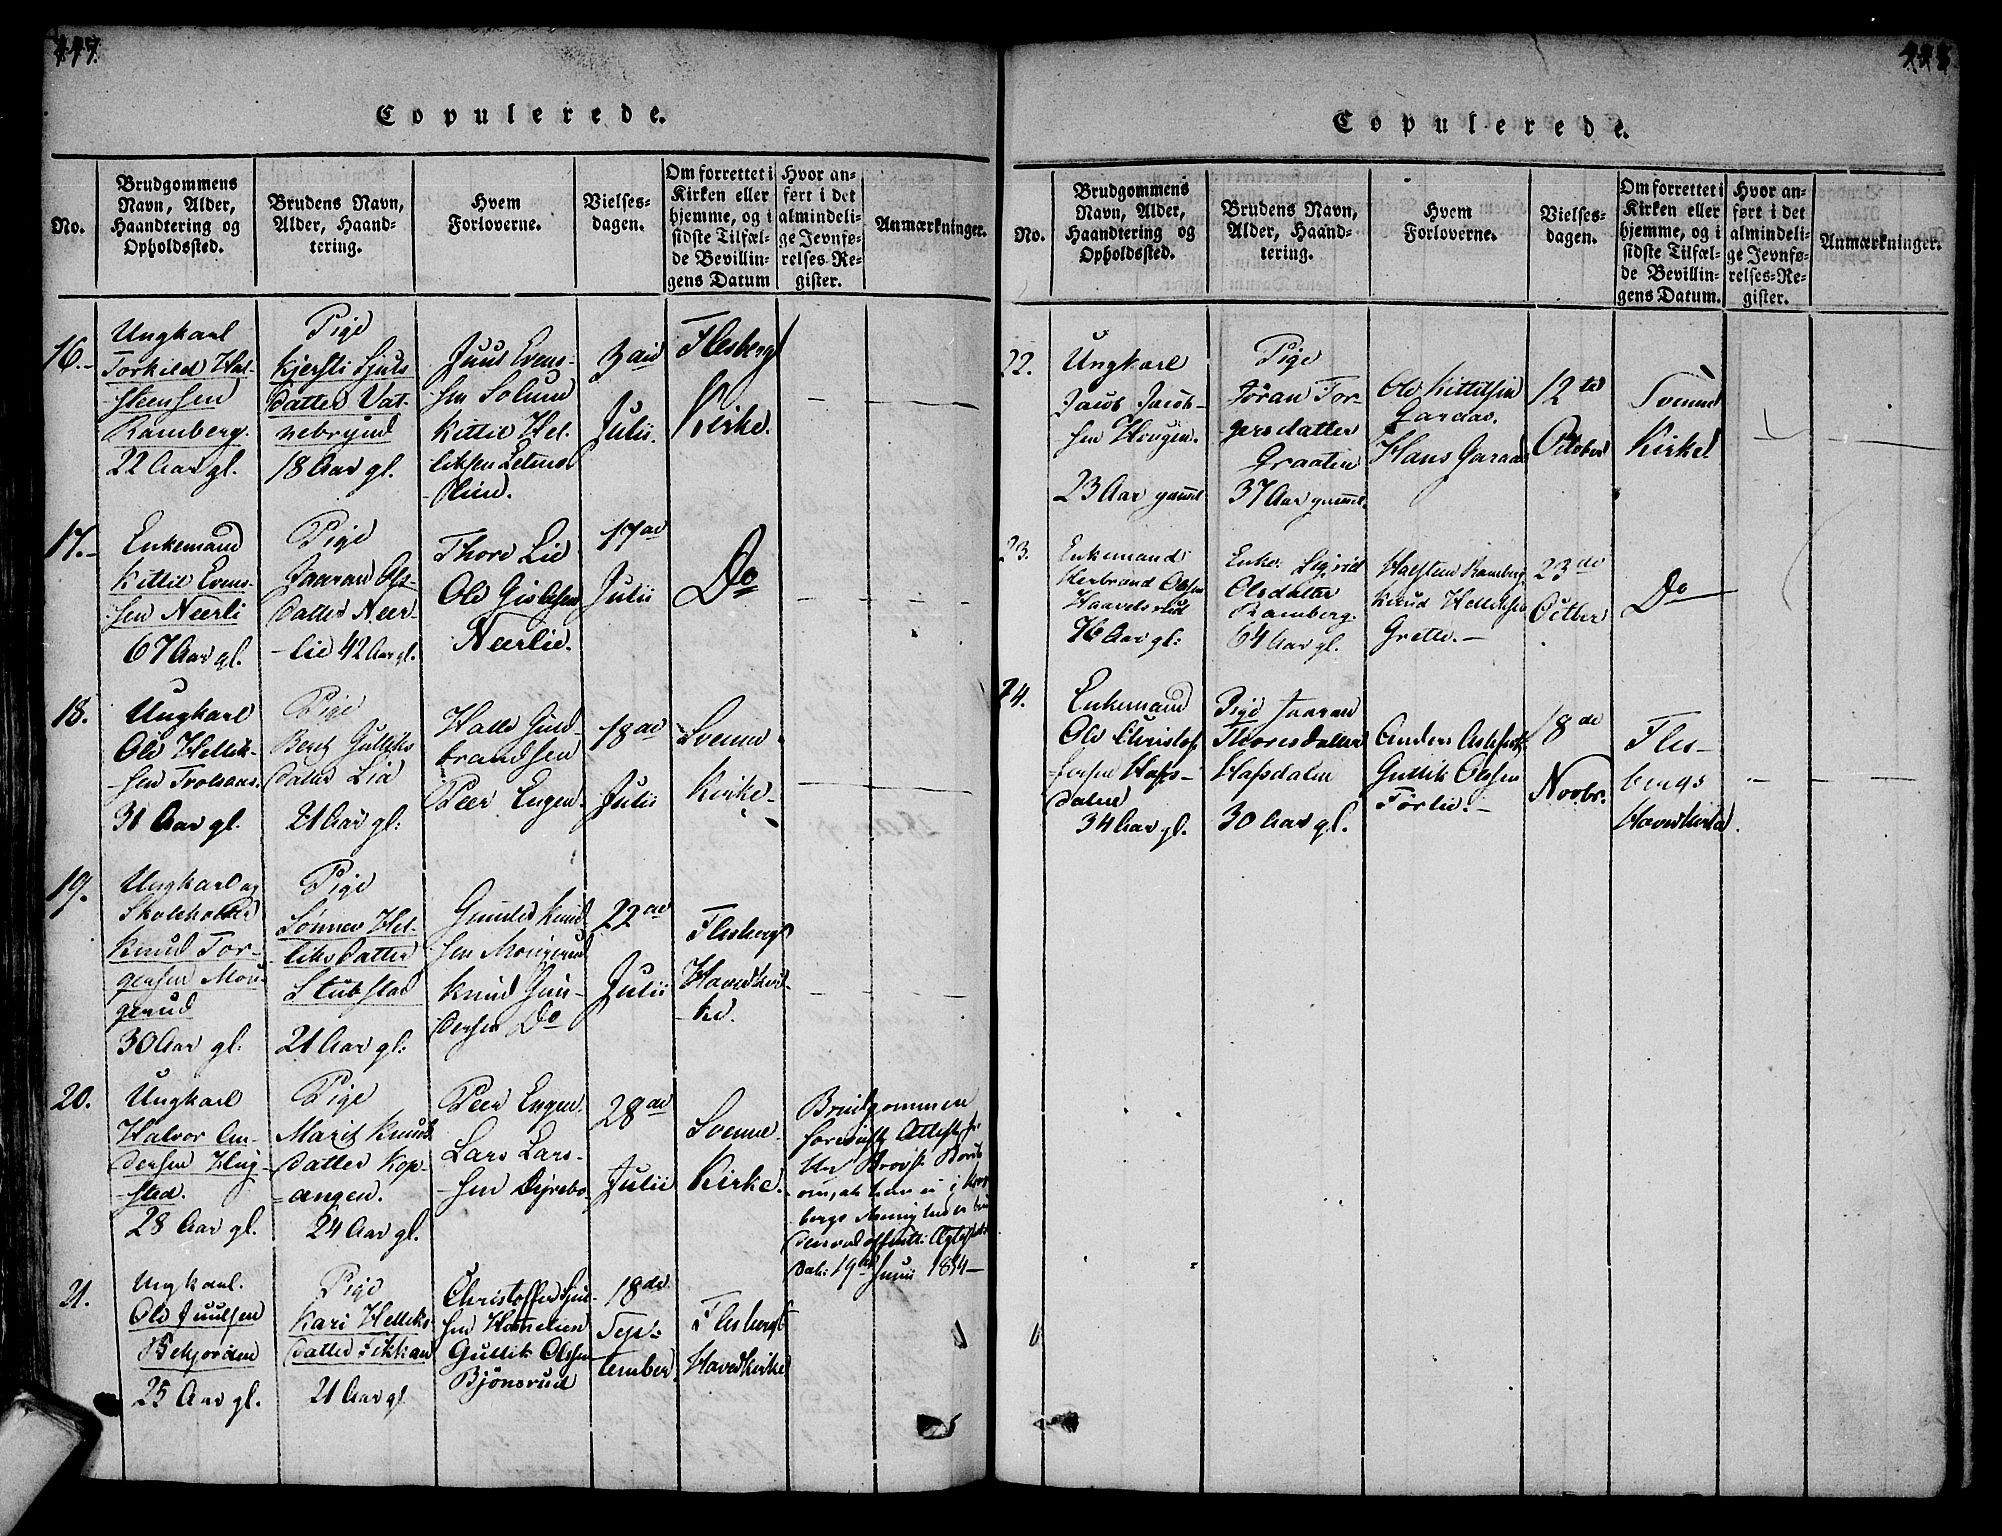 447.
Copulerede.
No.
Brudgommens
Navn, Alder,
Haandtering og
Opholdssted.
Brudens Navn,
Alder, Haand-
tering.
Hvem
Forloverne.
Vielses-
dagen.
Om forrettet i
Kirken eller
hjemme, og i
sidste Tilfæl-
de Bevillin-
gens Datum
Hvor an-
ført i det
almindeli-
ge Jevnfø-
relses-Re-
gister.
Anmærkninger.
16.-
Ungkarl
Torkild Hal-
steensen
Ramberg.
22 Aar gl.
Pige
Kjersti Sjuls
datter Vat-
nebrynd
18 Aar gl.
Juul Evens-
sen Solum
Kittil Hel-
liksen
3die
Julii.
Flesberg
Kirke.
17.-
Enkemand
Kittil Evens-
sen Neerli
67 Aar gl.
Pige
Jaaran Ols-
datter Neer-
-lie 42 Aar gl.
Thore Lie
Ole Gislesen
Neerlie.
17de
Julii
Do
18.
Ungkarl
Ole Hellik-
sen
31 Aar gl.
Pige
Berit Gulliks
datter Lia
21 Aar gl:
Halle Gud-
brandsen
Peer Engen.
18de
Julii
Svenne
Kirke.
19.
Ungkarl og
Skoleholder
Knud Tor-
gersen Mou-
gerud
30 Aar gl.
Pige
Sønnev Hel-
liks datter
Stubstad
21 Aar gl:
Gunder Knud
sen Mougerud
Knud Gun-
dersen Do
22de
Julii
Flesbergs
Hoved Kir-
ke.
20.
Ungkarl
Halvor An-
dersen
-sted.
28 Aar gl.
Pige
Marit Knuds
datter Kop-
-angen.
24 Aar gl.
Peer Engen.
Lars Lars-
-sen Dyrebo.
28de
Julii
Svenne
Kirke.
Brudgommen
foreviiste Attest fra
Provst
om, at han ei i Kongs
bergs Menighed er
Dat: 19de Junii 1814-
21.
Ungkarl.
Ole Juulsen
Bekjorden
25 Aar gl.
Pige
Kari Helliks
datter Fikkan
21 Aar gl
Christoffer Sjul-
sen
Gullik Olsen
Bjønsrud
18de
Sep-
tember.
Flesbergs
Hoved Kirke
448
Copulerede.
No.
Brudgommens
Navn, Alder,
Haandtering og
Opholdssted.
Brudens Navn,
Alder, Haand-
tering.
Hvem
Forloverne.
Vielses-
dagen.
Om forrettet i
Kirken eller
hjemme, og i
sidste Tilfæl-
de Bevillin-
gens Datum.
Hvor an-
ført i det
almindeli-
ge Jevnfø-
relses-Re-
gister.
Anmærkninger.
22.
Ungkarl
Jacob Jacob-
sen Hougen.
23 Aar gammel
Pige
Jøran Tor-
gersdatter
Graaten
37 Aar gammel.
Ole Kittilsen
Garaas.
Hans Garaas
12te
October
Svenne
Kirke
23.
Enkemand
Herbrand Olsen
Haavelsrud
76 Aar gl:
Enke Sigrid
Olsdatter
Ramberg.
64 Aar gl.
Halsten Ramberg
Knud Helliksen
Grette.-
23de
Octber
Do
24.
Enkemand
Ole Christof-
fersen Hafs-
dalen
34 Aar gl.
Pige Jaaran
Thoresdatter
Hafsdalen
30 Aar gl.
Anders
Gullik Olsen
Førlie.-
18de
Novbr.
Fles-
bergs
Hoved Kirke.